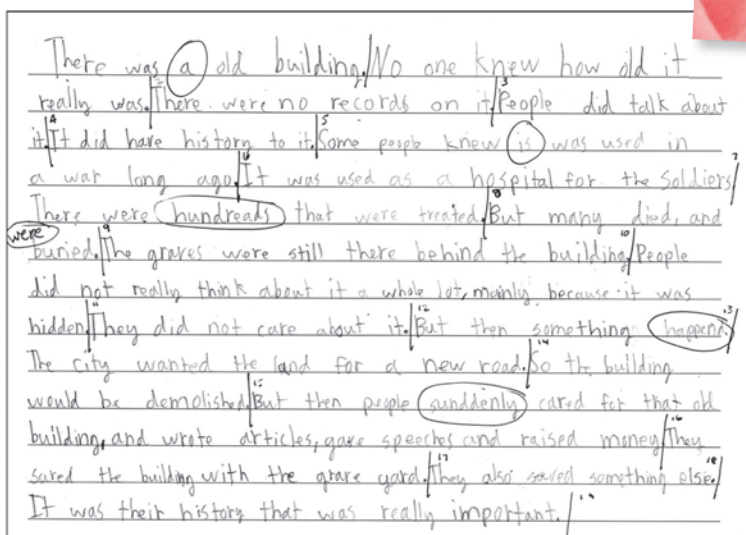 There was a old building. No one knew how old it
2 3
really was. There were no records on it. People did talk about
4 5
it. It did have history to it. Some people knew is was used in
6 7
a war long ago. It was used as a hospital for the soldiers
8
There were hundreads that were treated. But many died, and
were 9 10
buried. The graves were still there behind the building. People
did not really think about it a whole lot, mainly because it was
11 12 13
hidden. They did not care about it. But then something happend.
14
The city wanted the land for a new road. So the building
15
would be demolished. But then people sunddenly cared for that old
16
building, and wrote articles, gave speeches and raised money. They
17 18
saved the building with the grave yard. They also saved something else.
19
It was their history that was really important.